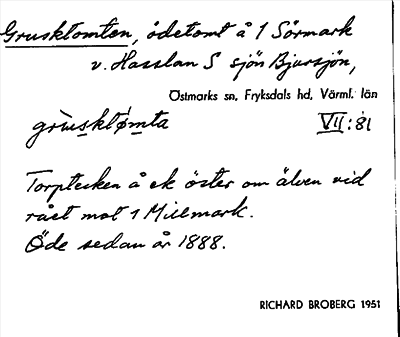 Grusktomten, ödetomt å 1 Sörmark
v. Hasslan S sjön Bjursjön,
Östmarks sn, Fryksdals hd, Värml. län
grùsktǿmta VII:81
Torptecken å ek öster om älven vid
rået mot 1 Millmark.
Öde sedan år 1888.
RICHARD BROBERG 1951